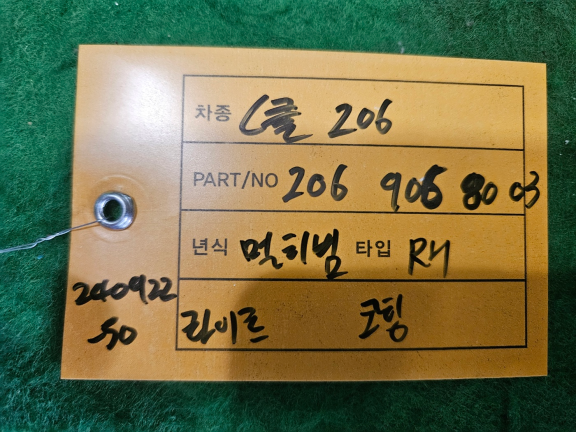 차종 C클 206
PART/NO 206 906 80 03
년식 멀티빔 타입 RH
240922
-50
라이트 코팅